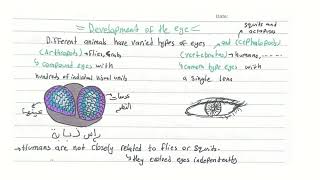 Date:
= Development of the eye =
squits and
octapuses
Different animals have varied types of eyes
and (Cephalopods)
(Arthropods) → flies, crab
(vertebrates) → humans,......
↳ compound eyes with
↳ camera type eyes with
hundreds of individual visual units
a single lens
رأس ذبابة
→ Humans are not closely related to flies or squits.
↳ they evolved eyes independently